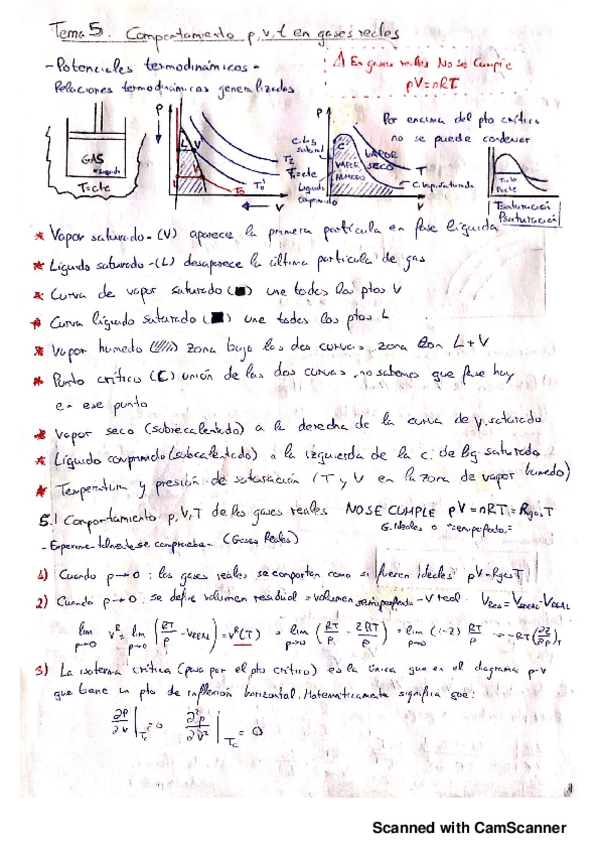 Tema 5. Comportamiento p, v, t en gases reales
- Potenciales termodinámicos -
⚠ En gases reales No se Cumple
pV = nRT
Relaciones termodinámicas generalizadas
GAS
Líquido
T=cte
P
L
V
T2
T1=cte
V
P
C
VAPOR SECO
VAPOR HUMEDO
Líquido comprimido
T
C. Vap. saturado
V
Por encima del pto crítico
no se puede condensar
* Vapor saturado - (V) aparece la primera partícula en fase líquida
* Líquido saturado - (L) desaparece la última partícula de gas
* Curva de vapor saturado (■) une todos los ptos V
* Curva líquido saturado (■) une todos los ptos L
* Vapor humedo (////) zona bajo las dos curvas, zona con L+V
* Punto crítico (C) unión de las dos curvas, no sabemos que fase hay
en ese punto
* Vapor seco (sobrecalentado) a la derecha de la curva de v. saturado
* Líquido comprimido (subcalentado) a la izquierda de la c. de líq saturado
* Temperatura y presión de saturación (T y V en la zona de vapor humedo)
5.1 Comportamiento p, V, T de los gases reales NO SE CUMPLE pV = nRT = Rgas T
G. ideales o "semiperfecto"
- Experimentalmente se comprueba - (Gases Reales)
1) Cuando p→0: los gases reales se comportan como si fueren ideales pV = Rgas T
2) Cuando p→0: se define volumen residual = volumen semiperfecto - V real.
lim p→0 v^R = lim p→0 (RT/p - VREAL) = v^R(T) = lim p→0 (RT/p - ZRT/p) = lim p→0 (1-Z) RT/p = -RT(∂Z/∂p)T
3) La isoterma crítica (pasa por el pto crítico) es la única que en el diagrama p-v
que tiene un pto de inflexión horizontal. Matematicamente significa que:
∂P/∂v |Tc = 0 ∂²p/∂v² |Tc = 0
Scanned with CamScanner